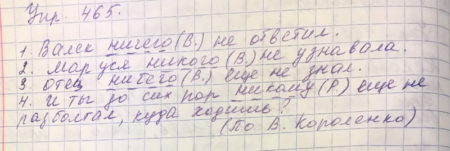 Упр. 465.
1. Валек ничего (В.) не ответил.
2. Маруся никого (В.) не узнавала.
3 Отец ничего (В.) еще не знал.
4. И ты до сих пор никому (Р.) еще не
разболтал, куда ходишь?
(По В. Короленко)